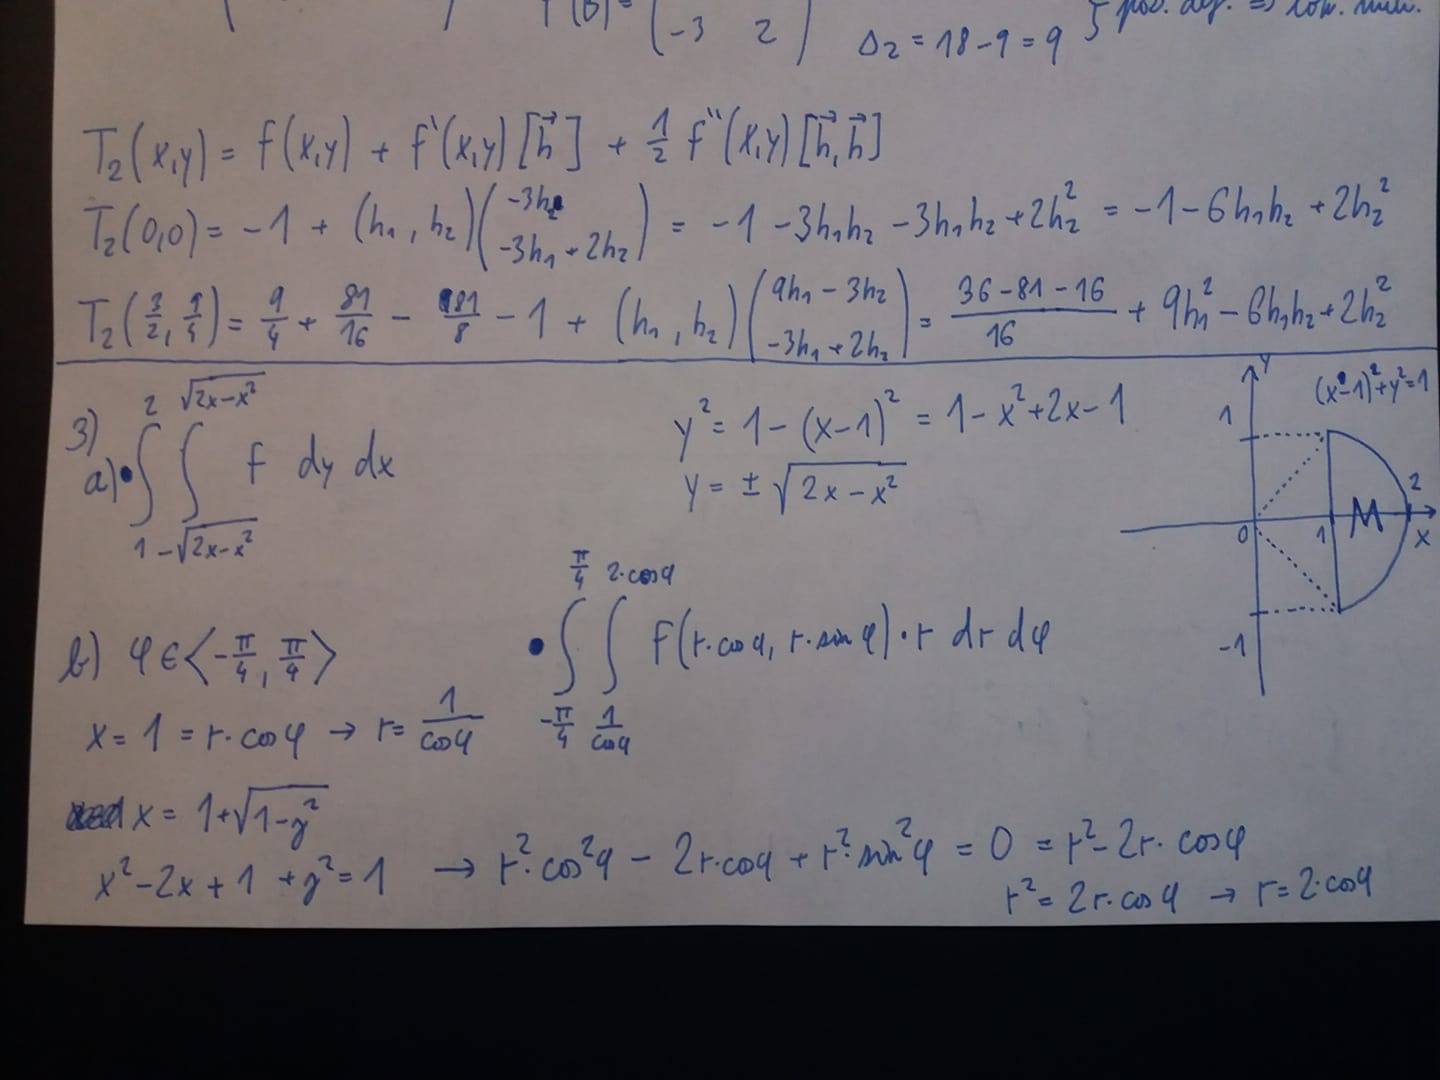 (-3 2) Δ₂ = 18 - 9 = 9
T₂(x,y) = f(x,y) + f'(x,y)[h⃗] + 1/2 f''(x,y)[h⃗,h⃗]
T₂(0,0) = -1 + (h₁, h₂)(-3h₂ -3h₁+2h₂) = -1 - 3h₁h₂ - 3h₁h₂ + 2h₂² = -1 - 6h₁h₂ + 2h₂²
T₂(3/2, 9/4) = 9/4 + 81/16 - 81/8 - 1 + (h₁, h₂)(9h₁-3h₂ -3h₁+2h₂) = (36-81-16)/16 + 9h₁² - 6h₁h₂ + 2h₂²
3)
a) ∫₁² ∫_{-√(2x-x²)}^{√(2x-x²)} f dy dx
y² = 1 - (x-1)² = 1 - x² + 2x - 1
y = ± √(2x - x²)
y
(x-1)² + y² = 1
1
2
0 1 M x
-1
b) φ ∈ ⟨-π/4, π/4⟩
∫_{-π/4}^{π/4} ∫_{1/cosφ}^{2·cosφ} f(r·cosφ, r·sinφ)·r dr dφ
x = 1 = r·cosφ → r = 1/cosφ
x = 1+√(1-y²)
x² - 2x + 1 + y² = 1 → r²·cos²φ - 2r·cosφ + r²·sin²φ = 0 = r² - 2r·cosφ
r² = 2r·cosφ → r = 2·cosφ